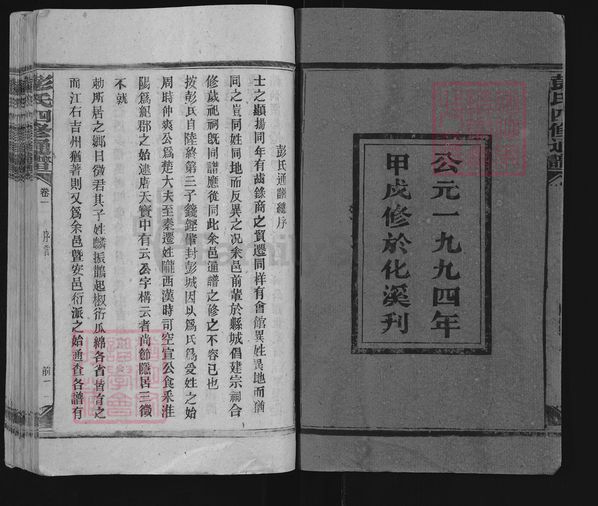 彭氏四修通譜
公元一九九四年
甲戌修於化溪刊
彭氏通譜總序
士之顯揚同年有齒錄商之貿遷同祥有會館異姓異地而猶
同之豈同姓同地而反異之况余邑前輩於縣城倡建宗祠合
修歲祀祠既同譜應從同此余邑通譜之修之不容已也
按彭氏自陸終第三子籛鏗肇封彭城因以爲氏爲受姓之始
周時仲爽公爲楚大夫至秦遷姓隴西漢時司空宣公食釆淮
陽爲紀郡之始逮唐天寶中有云公字構云者尚節隱居三徵
不就
勅所居之鄉曰徵君其子姓麟振鵲起椒衍瓜綿各省皆有之
而江右吉州猶著則又爲余邑暨安邑衍派之始通查各譜有
彭氏四修通譜
卷一
序